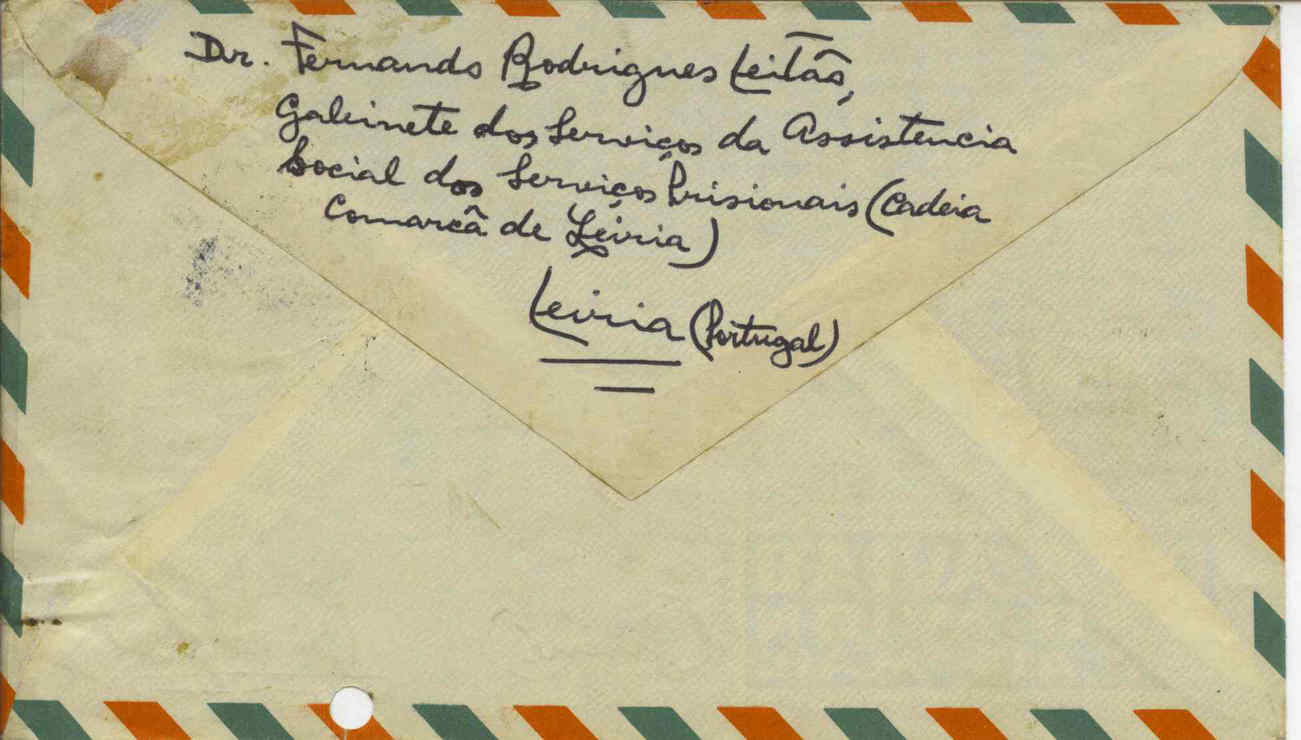 Dr. Fernando Rodrigues Leitão,
Gabinete dos Serviços da Assistencia
Social dos Serviços Prisionais (Cadeia
Comarcã de Leiria)
Leiria (Portugal)